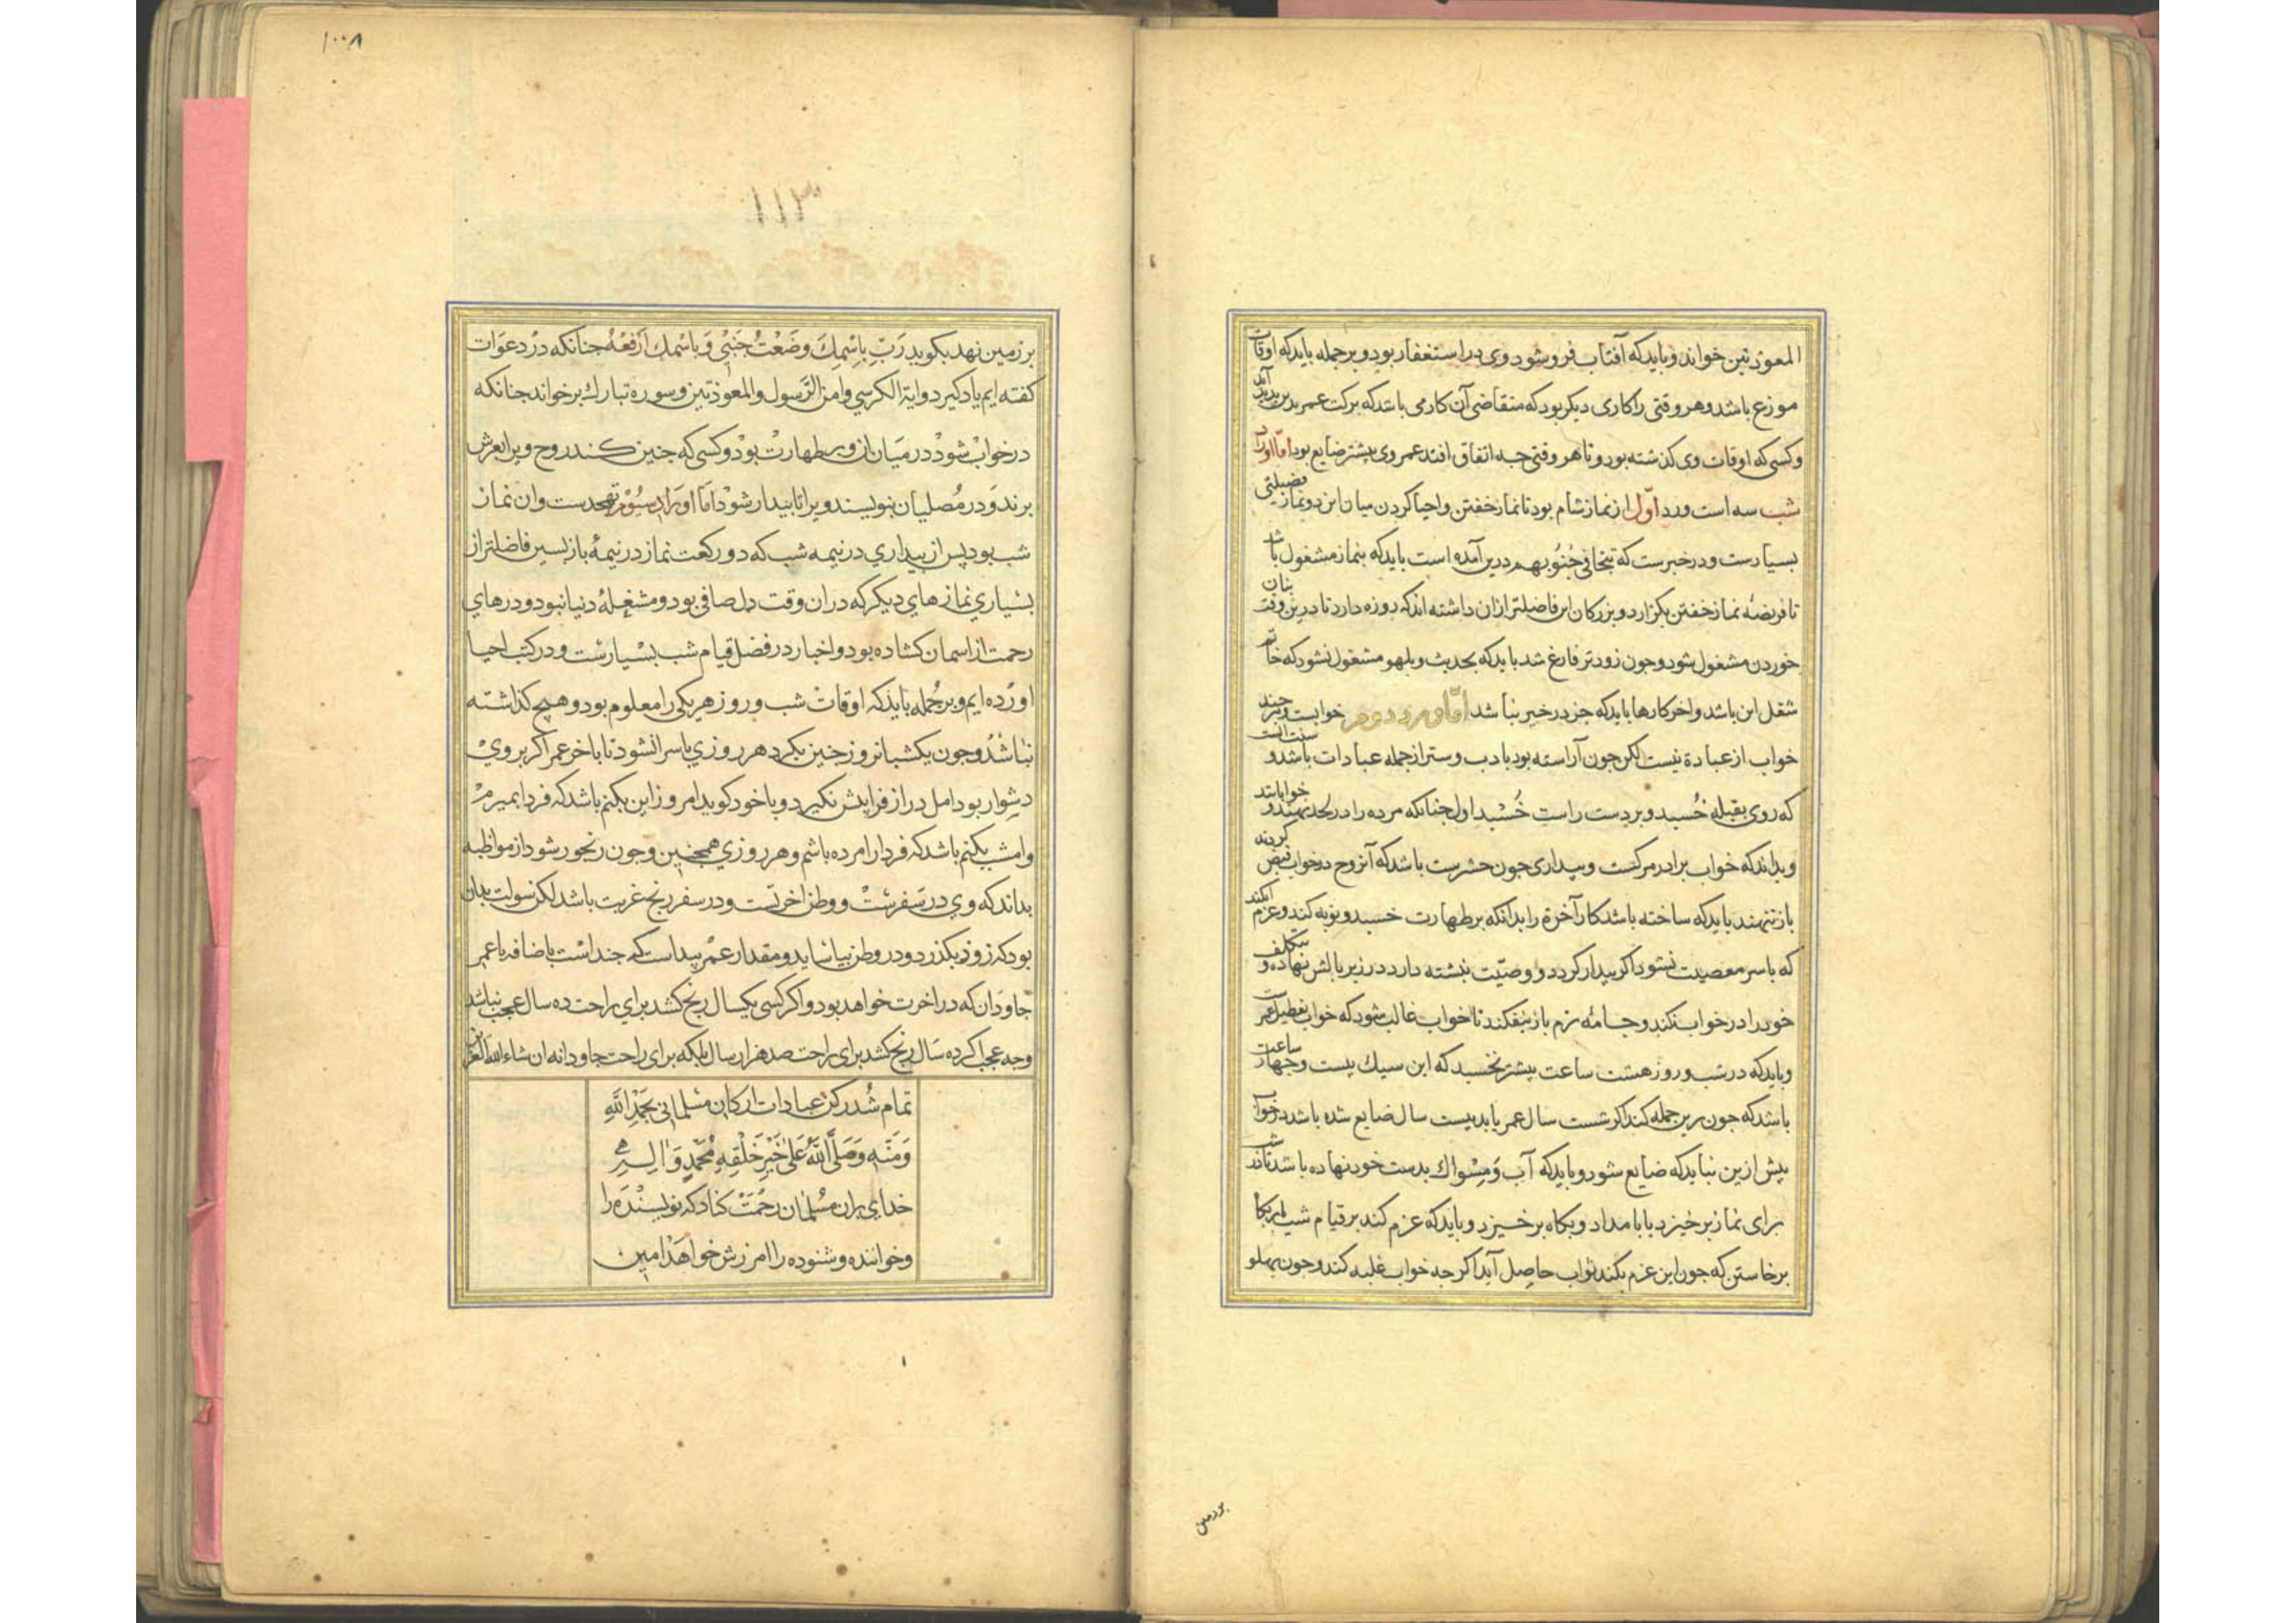 المعوذتین خواند و باید که آفتاب فرو شود وی در استغفار بود و بر جمله باید که اوقات
موزع باشد و هر وقتی را کاری دیکر بود که متقاضی آن کار می باشد که برکت عمر بدین پدید آید
و کسی که اوقات وی کذشته بود و تا هر وقتی جه اتفاق افتد عمر وی بیشتر ضایع بود اما اوراد
شب سه است ورد اول از نماز شام بود تا نماز خفتن و احیا کردن میان این دو نماز فضیلتی
بسیارست و در خبرست که تتجافی جنوبهم درین آمده است باید که بنماز مشغول باشد
تا فریضه نماز خفتن بکزارد و بزرکان این فاضلتر ازان داشته اند که روزه دارد تا درین وقت بنان
خوردن مشغول شود و جون زودتر فارغ شد باید که بحدیث و بلهو مشغول نشود که خاتم
شغل این باشد و اخر کارها باید که جز در خیر نباشد اما ورد دوم خوابست و هر چند
خواب از عبادة نیست لکن جون آراسته بود بادب و سنت از جمله عبادات باشد و سنت انست
که روی بقبله خسبد و بر دست راست خُسْبد اول جنانکه مرده را در لحد نهند و خوابانند
و بداند که خواب برادر مرکست و بیداری جون حشرست باشد که آن روح در خواب قبض کردند
باز ندهند باید که ساخته باشد کار آخرة را بدانکه بر طهارت خسبد و توبه کند و عزم آنکند
که با سر معصیت نشود اکر بیدار کردد و وصیّت نبشته دارد در زیر بالش نهاده و بتکلف
خود را در خواب نکند و جامه نرم باز نیفکند تا خواب غالب شود که خواب تعطیل عمر است
و باید که در شب و روز هشت ساعت بیشتر نخسبد که این سیك بیست و جهار ساعت
باشد که جون برین جمله کند اکر شست سال عمر یابد بیست سال ضایع شده باشد در خواب
بیش ازین نباید که ضایع شود و باید که آب وَمِسْواك بدست خود نهاده باشد تا در شب
برای نماز برخیزد یا بامداد و بکاه برخیزد و باید که عزم کند بر قیام شب یا بر بکاه
برخاستن که جون این عزم بکند ثواب حاصل آید اکر جه خواب غلبه کند و جون پهلو
بر زمین
١٠٠٨
١١٣
بر زمین نهد بکوید رَبِّ بِاسْمِكَ وضَعْتُ جَنْبِي وَ باسْمِك اَرْفَعُهُ جنانکه در دعَوَات
کفته ایم یاد کیرد و ایة الکرسي و امن الرَّسول و المعوذتین و سوره تبارك برخواند جنانکه
در خوابْ شودْ در میَان ان و بر طهارتْ بودْ و کسي که جنین کند روح ویرا بعرش
برند وَ در مُصلیان بنویسند ویرا تا بیدار شودْ امَا اورَاد سیُوم تهجدست و ان نماز
شب بود پس از بیداري در نیمه شب که دو رکعت نماز در نیمهٔ بازپسین فاضلتر از
بسْیاري نمازهاي دیکر که در ان وقت دل صافي بود و مشغلهٔ دنیا نبود و درهاي
رحمت از اسمان کشاده بود و اخبار در فضل قیام شب بسْیارسْت و در کتب احیا
اورْده ایم و بر جُمله بایذ که اوقاتْ شب و روز هریکي را معلوم بود و هیچ کذاشته
نباشدْ و جون یکشبانروز جنین بکرد هر روزي با سر انشود تا باخر عمر اکر بر وي
دشْوار بود امل دراز فرا پیش نکیرد و با خود کوید امروز این بکنم باشد که فردا بمیرم
و امشب بکنم باشد که فردا را مرده باشم و هر روزي همجنین و جون رنجور شود از مواظبه
بداند که وي در سَفرسْت و وطن اخرتست و در سفر رنج غربت باشد لکن سولت بدان
بود که زوذ بکذرد و در وطن بیاساید و مقدار عمْر پیداست که جند است باضافه با عمر
جاودَان که در اخرت خواهد بود و اکر کسي یکسال رنج کشد براي راحت ده سال عجب نباشد
وجه عجب اکر ده سَال رنج کشد براي راحت صد هزار سال بلکه براي راحت جاودانه ان شاء الله العزیز
تمام شُد رکن عبادات ارکان مسلمانی بحَمْدِ اللهِ
وَ مَنِّه وَ صَلَّى اللهُ عَلى خَیْرِ خَلْقِهِ مُحَمَّدٍ وَ الِه
خداي بران مسْلمان رَحْمَتْ کناد که نویسنْدَه را
و خواننده و شنونده را امرزش خواهَدْ امین